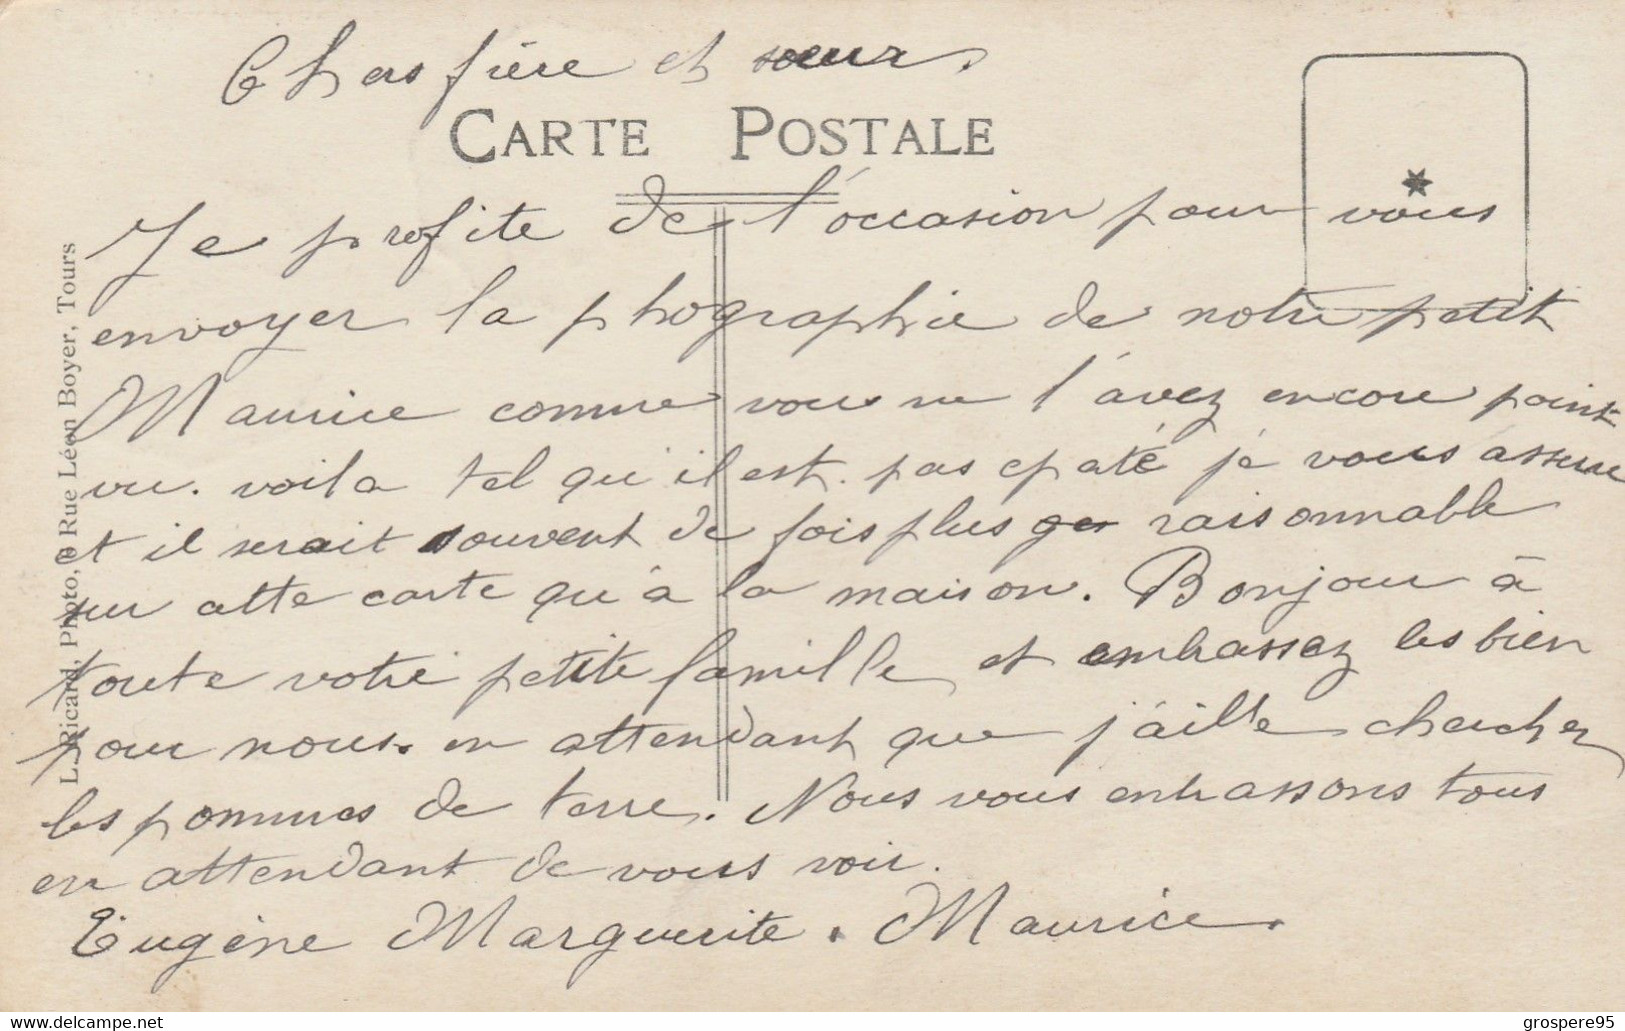 Chers frère et soeur,
CARTE POSTALE
Je profite de l'occasion pour vous
envoyer la phographie de notre petit
Maurice comme vous ne l'avez encore point
vu. voila tel qu'il est. pas epaté je vous assure
et il serait souvent de fois plus raisonnable
sur cette carte qu'à la maison. Bonjour à
toute votre petite famille et embrassez les bien
pour nous. en attendant que j'aille chercher
les pommes de terre. Nous vous embrassons tous
en attendant de vous voir.
Eugène Marguerite. Maurice.
L. Ricard, Photo, Rue Léon Boyer, Tours
https://www.delcampe.net
grospere95